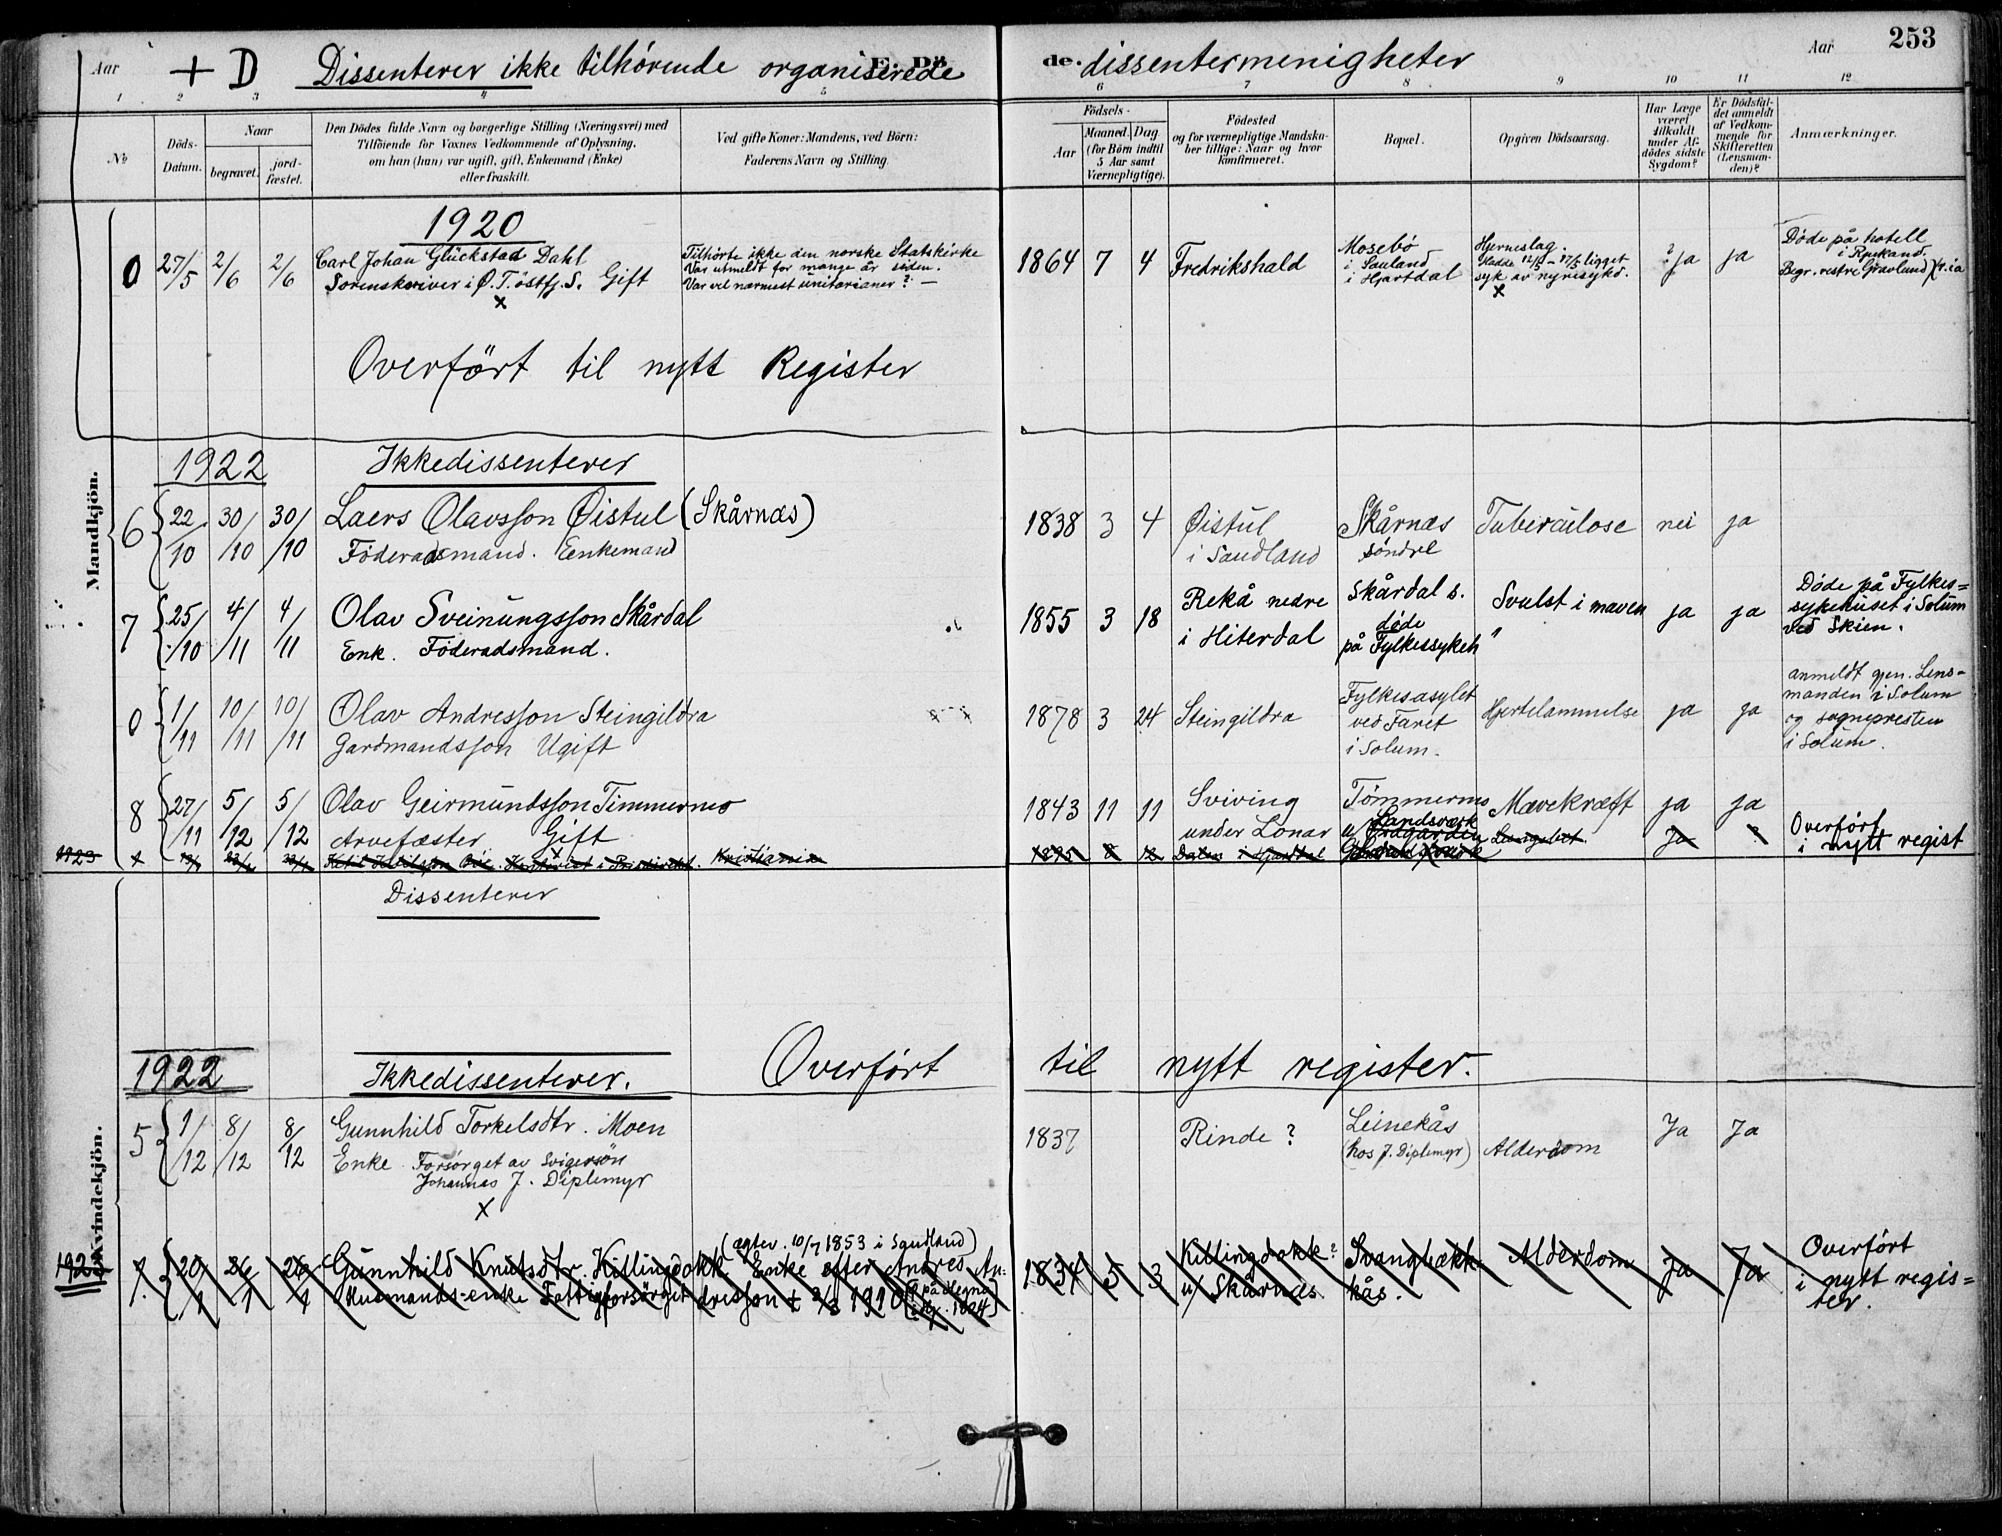 Aar + D Dissenterer ikke tilhørende organiserede E. Dö de. dissentermenigheter Aar 253
1 2 3 4 5 6 7 8 9 10 11 12
No
Döds-Datum.
Naar
begravet.
jord-fæstet.
Den Dödes fulde Navn og borgerlige Stilling (Næringsvei) med
Tilföiende for Voxnes Vedkommende af Oplysning,
om han (hun) var ugift, gift, Enkemand (Enke)
eller fraskilt.
Ved gifte Koner: Mandens, ved Börn:
Faderens Navn og Stilling.
Födsels-
Aar
Maaned. Dag.
(for Börn indtil
5 Aar samt
Værnepligtige).
Födested
og for værnepligtige Mandska-
ber tillige: Naar og hvor
konfirmeret.
Bopæl.
Opgiven Dödsaarsag.
Har Læge
været
tilkaldt
under Af-
dödes sidste
Sygdom?
Er Dödsfal-
det anmeldt
af Vedkom-
mende for
Skifteretten
(Lensman-
den)?
Anmærkninger.
Mandkjön.
1920
0 27/5 2/6 2/6 Carl Johan Glückstad Dahl
Sorenskriver i Ø. T. östfj. S. Gift
x
Tilhörte ikke den norske Statskirke
Var utmeldt for mange år siden.
Var vel nærmest unitarianer? —
1864 7 4 Fredrikshald
Mosebö
i Sauland
i Hjartdal
Hjerneslag.
Hadde 12/5 - 27/5 ligget
syk av nyresykd.
x
? Ja ja
Døde på hotell
i Rjukand.
Begr. vestre Gravlund
Overført til nytt Register
1922 Ikkedissenterer
6 22/10 30/10 30/10 Laers Olavsson Øistul (Skårnæs)
Föderadsmand. Eenkemand
1838 3 4 Øistul
i Saudland
Skårnæs
söndre
Tuberculose nei ja
7 25/10 4/11 4/11 Olav Sveinungsson Skårdal
Enk. Föderadsmand.
1855 3 18 Rekå nedre
i Hiterdal
Skårdal s.
døde
på Fylkessykeh
Svulst i maven ja ja
Døde på Fylkes=
sykehuset i Solum
ved Skien.
0 1/11 10/11 10/11 Olav Andresson Steingildra
Gardmandsson Ugift
1878 3 24 Steingildra
Fylkesasylet
ved Faret
i Solum.
Hjertelammelse ja ja
anmeldt gjen. Lens=
manden i Solum
og sognepresten
i Solum.
8 27/11 5/12 5/12 Olav Geirmundsson Timmernes
Arvefæster Gift
x
1843 11 11 Sviving
under Lonar
Tömmernes
u/ Landsverk
Mavekræft ja ja
1923 x Kristiania
1895 8 Ja ?
Overført
i nytt regist
Dissenterer
Kvindekjön.
1922 Ikkedissenterer. Overført til nytt register.
5 1/12 8/12 8/12 Gunnhild Torkelsdtr. Moen
Enke Forsörget av Svigersön
Johannes J. Diplemyr
x
1837 Rinde?
Leinekås
(hos J. Diplemyr)
Alderdom Ja Ja
1923 7. 20/1 26/1 26/1 Gunnhild Knutsdtr. Killingdokk
Husmands-enke Fattigforsörget
(ægtev. 10/7 1853 i Saudland)
Enke efter Andres An:
dresson + 2/3 1910
1834 5 3 Killingdokk?
u/ Skårnæs
Svangbækk
kås.
Alderdom Ja Ja
Overført
i nytt regis=
ter.